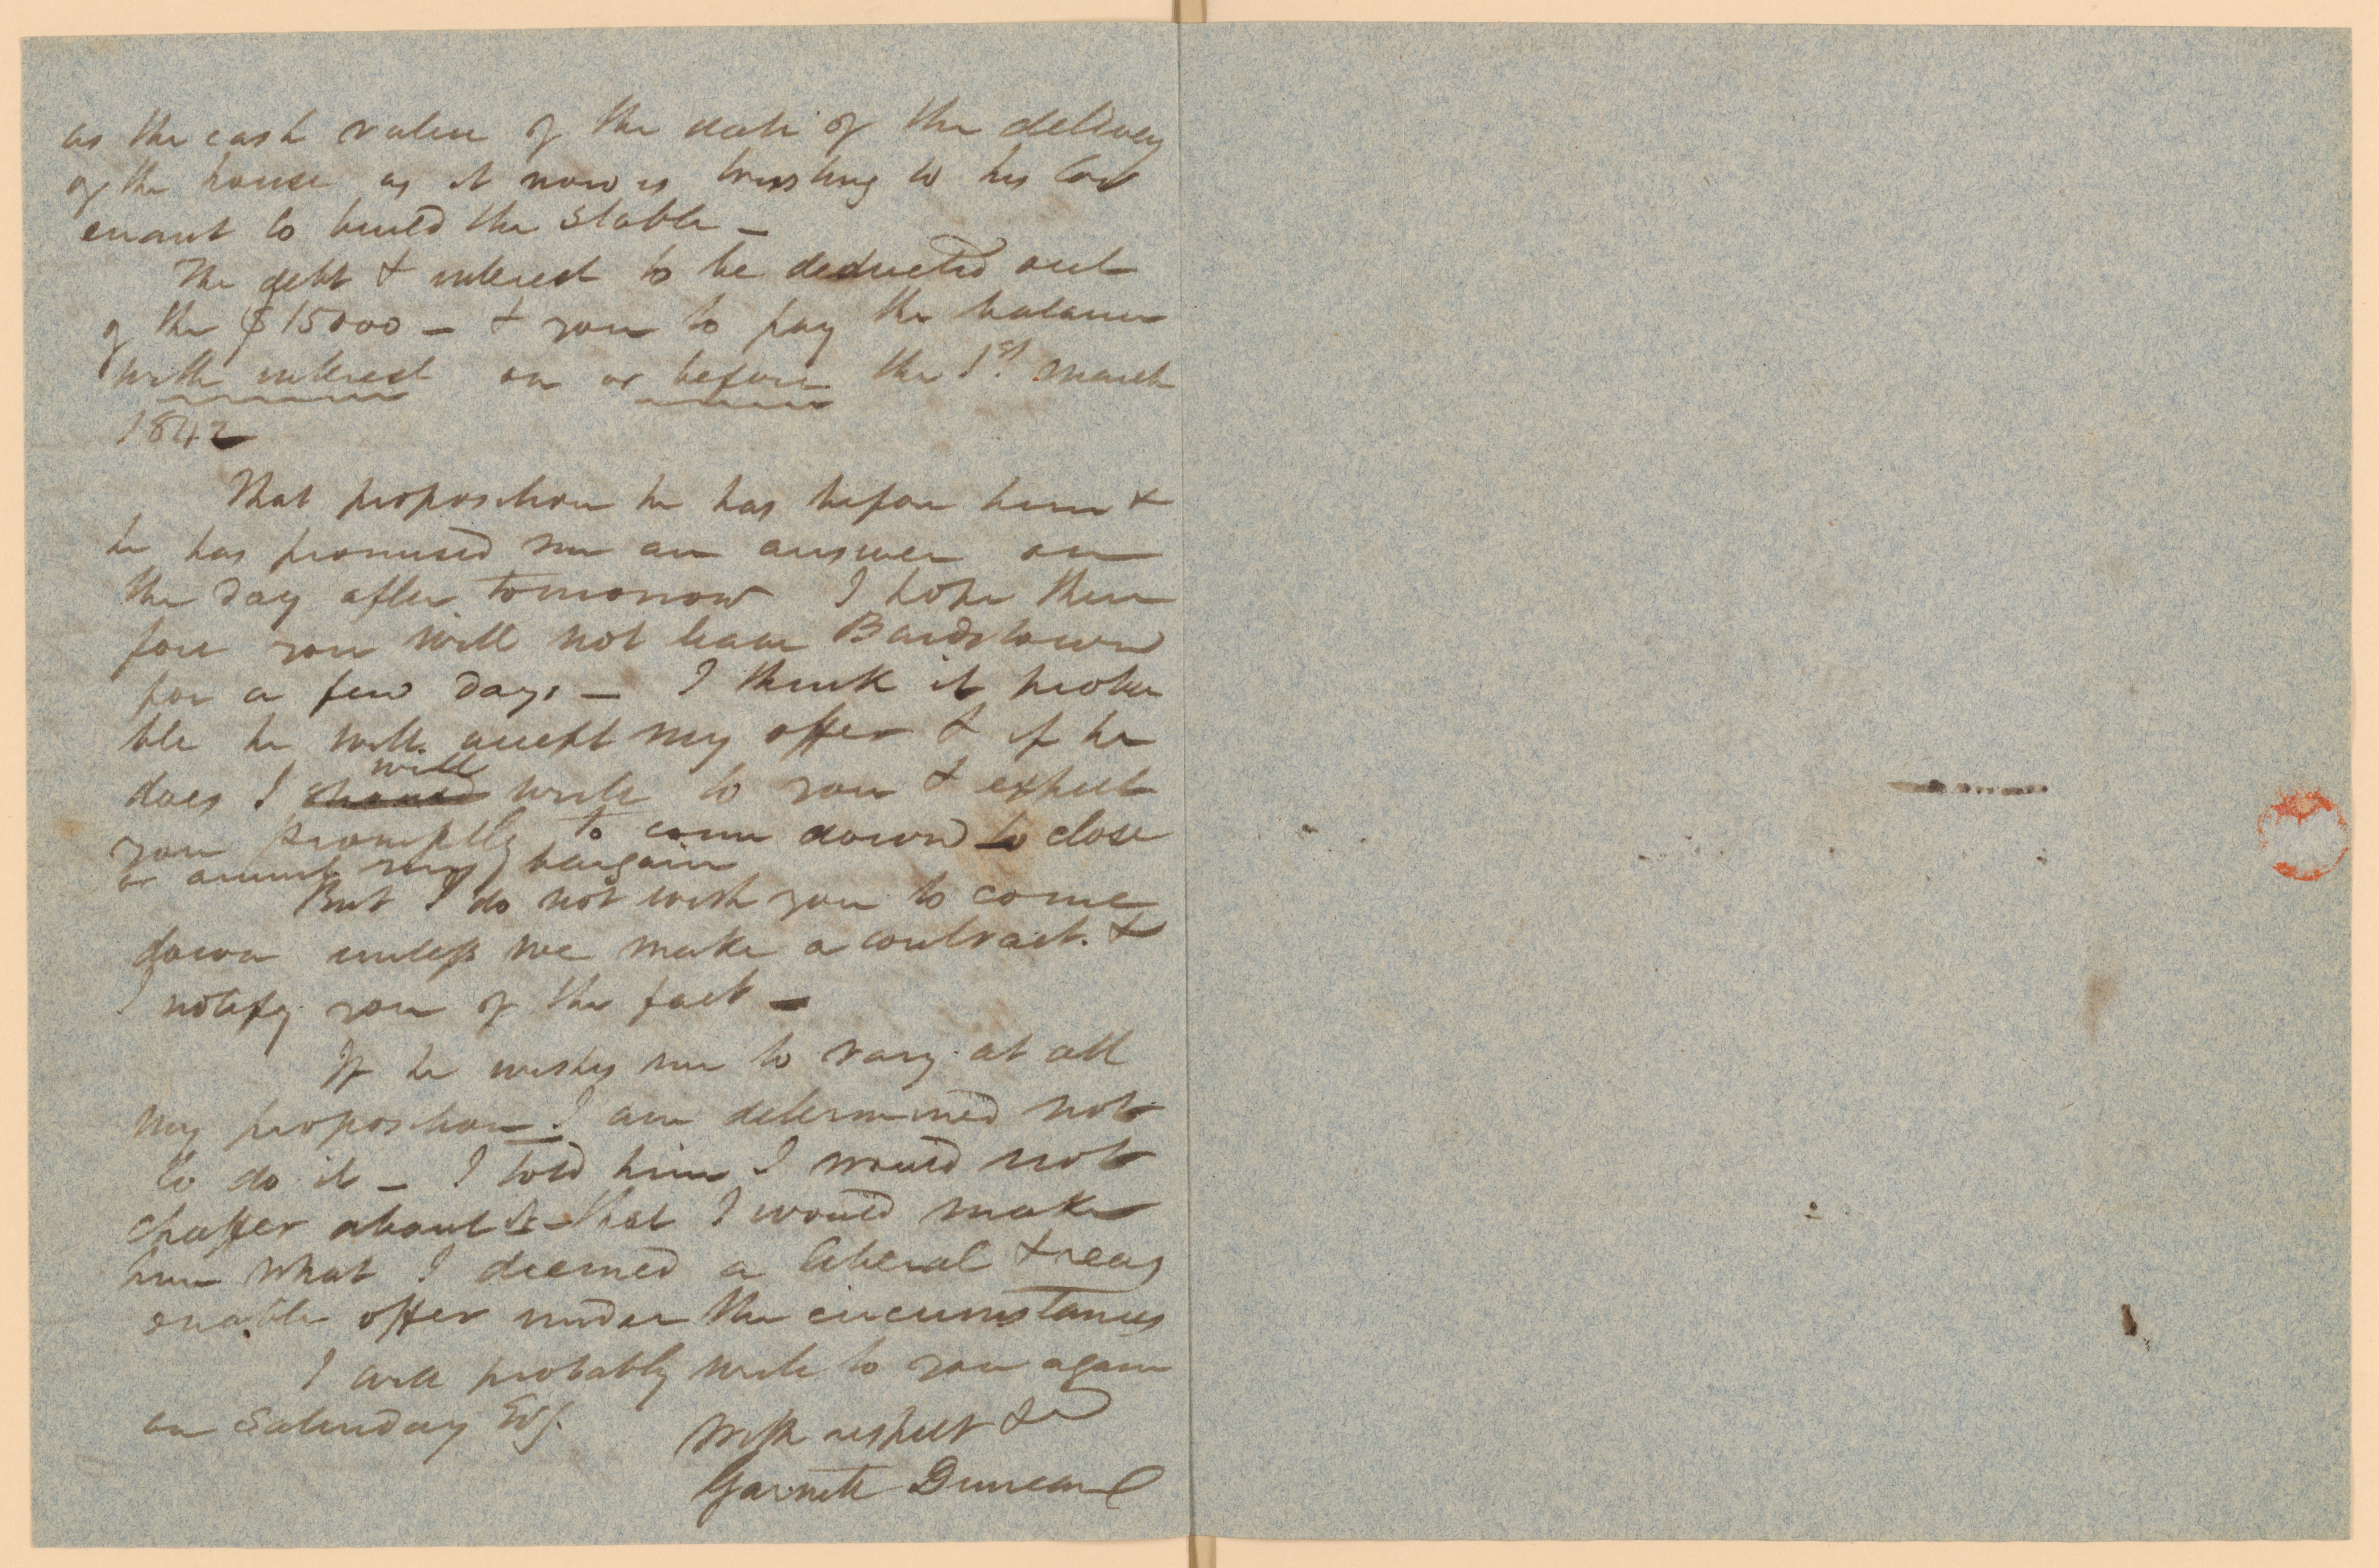 as the cash value of the date of the delivery
of the house as it now is trusting to his Cov
enant to build the stable —
The debt & interest to be deducted out
of the $15000 — & you to pay the balance
with interest on or before the 1st March
1842
That proposition he has before him &
he has promised me an answer on
the day after tomorrow I hope there
fore you will not leave Bardstown
for a few days — I think it proba
ble he will accept my offer & if he
does I should will write to you & expect
you promptly to come down to close
or annul my bargain
But I do not wish you to come
down unless we make a contract. &
I notify you of the fact —
If he wishes me to vary at all
my proposition I am determined not
to do it — I told him I would not
chaffer about it — that I would make
him what I deemed a liberal & reas
onable offer under the circumstances
I will probably write to you again
on Saturday Evg.
With respect &c
Garnett Duncan